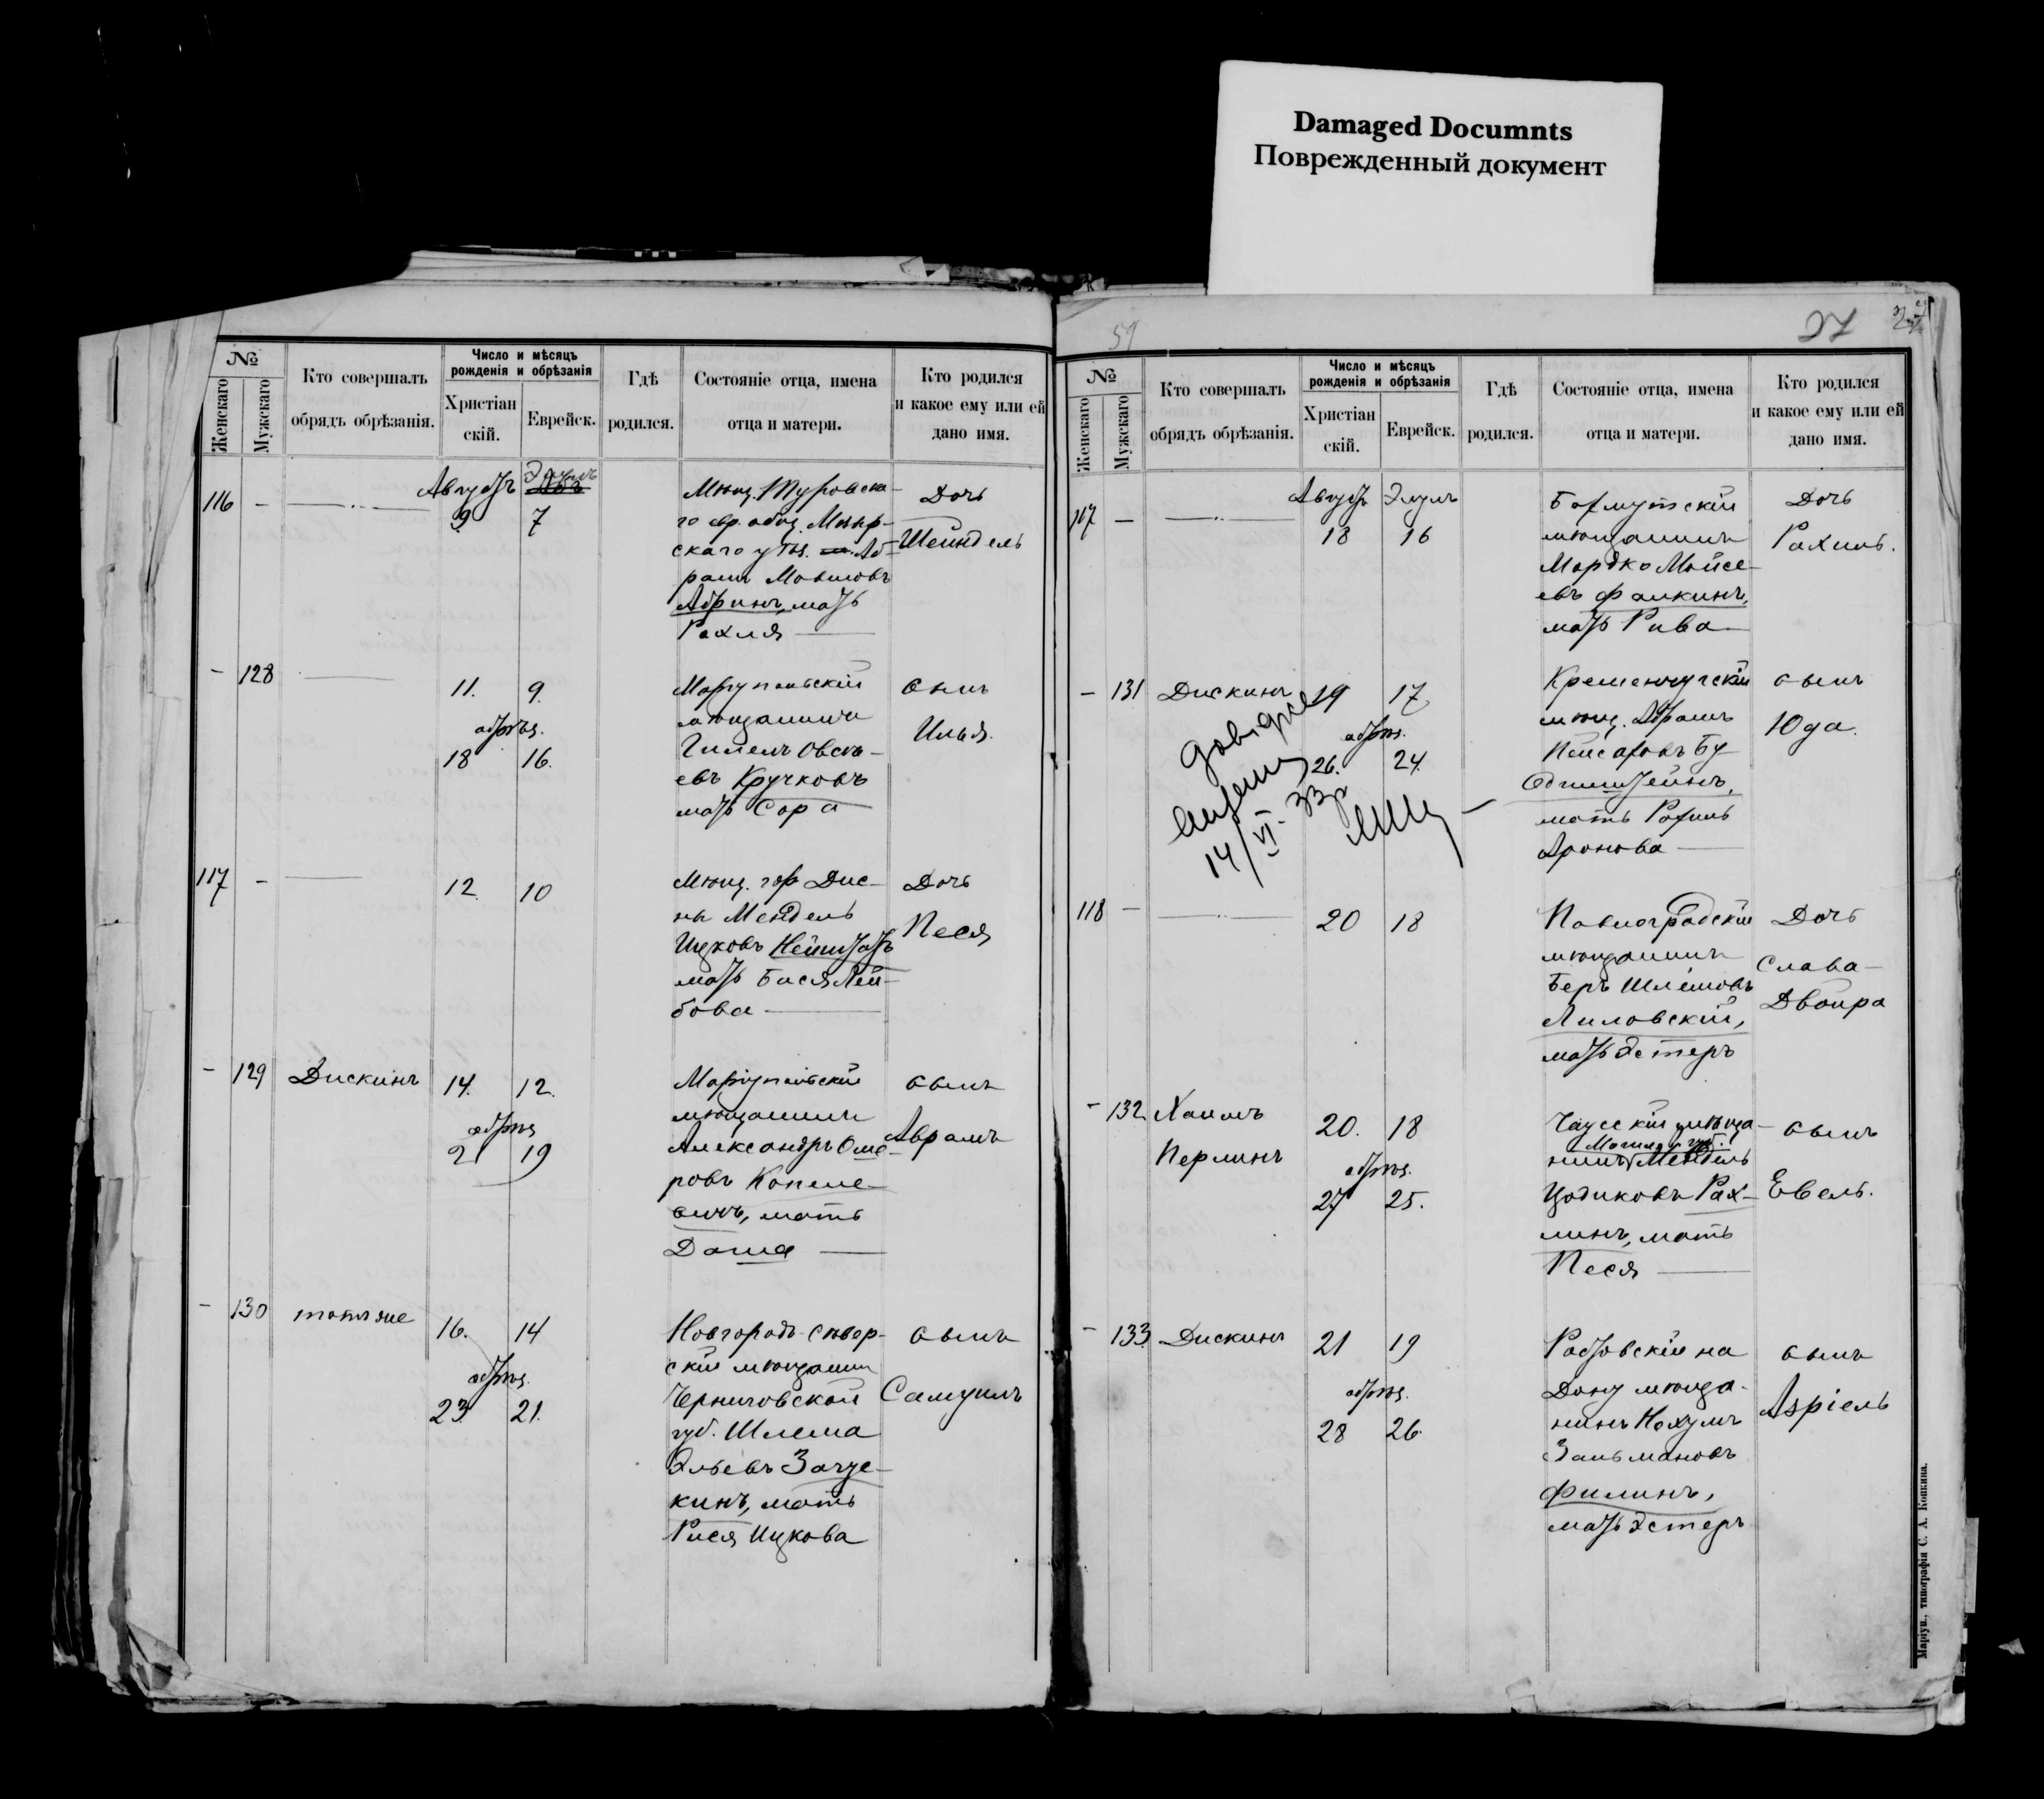 Damaged Documnts
Поврежденный документ
№
Женскаго
Мужскаго
Кто совершалъ
обрядъ обрѣзанія.
Число и мѣсяцъ
рожденія и обрѣзанія
Христіан
скій.
Еврейск.
Гдѣ
родился.
Состояніе отца, имена
отца и матери.
Кто родился
и какое ему или ей
дано имя.
116 -
Августъ
9
7
Мѣщ. Туровска-
го евр. общ. Мозыр-
скаго уѣз. Аб-
рамъ Мовшовъ
Абринъ, мать
Рахля
Дочь
Шейндель
- 128
11. 9.
обрѣз.
18 16.
Маріупольскій
мѣщанинъ
Гилелъ Овсѣ-
евъ Кручковъ
мать Сора
сынъ
Илья.
117 -
12. 10
Мѣщ. гор. Дис-
ны Мендель
Ицковъ
мать Бася Лей-
бова
Дочь
Песя
- 129 Дискинъ
14. 12.
обрѣз
21 19
Маріупольскій
мѣщанинъ
Александръ
ровъ Копеле-
вичъ, мать
Доша
сынъ
Аврамъ
- 130 тотъ же
16. 14
обрѣз.
23 21.
Новгородъ-Сѣвер-
скій мѣщанин
Черниговской
губ. Шлема
Эльевъ
кинъ, мать
Рися Ицкова
сынъ
Самуилъ
59
27
№
Женскаго
Мужскаго
Кто совершалъ
обрядъ обрѣзанія.
Число и мѣсяцъ
рожденія и обрѣзанія
Христіан
скій.
Еврейск.
Гдѣ
родился.
Состояніе отца, имена
отца и матери.
Кто родился
и какое ему или ей
дано имя.
117 -
Августъ Элулъ
18 16
Бахмутскій
мѣщанинъ
Мордко Мойсе-
евъ Фалкинъ,
мать Рива
Дочь
Рахиль.
- 131 Дискинъ
19 17
обрѣз.
26. 24.
14/VI-33р
Кременчугскій
мѣщ. Абрамъ
Пейсаховъ Бу
мать Рахиль
Аронова
сынъ
Юда.
118 -
20 18
Павлоградскій
мѣщанинъ
Беръ Шлёмовъ
Лиловскій,
мать Эстеръ
Дочь
Слава-
Двойра
- 132 Хаимъ
Перлинъ
20. 18
обрѣз.
27 25.
Чаусскій мѣща-
Могилев. губ.
нинъ Мендель
Цодиковъ Рах-
линъ, мать
Песя
сынъ
Евель.
- 133 Дискинъ
21 19
обрѣз.
28 26.
Ростовскій на
Дону мѣща-
нинъ Нохумъ
Зальмановъ
Филинъ,
мать Эстеръ
сынъ
Азріель
Маріуп., типографія С. А. Копкина.